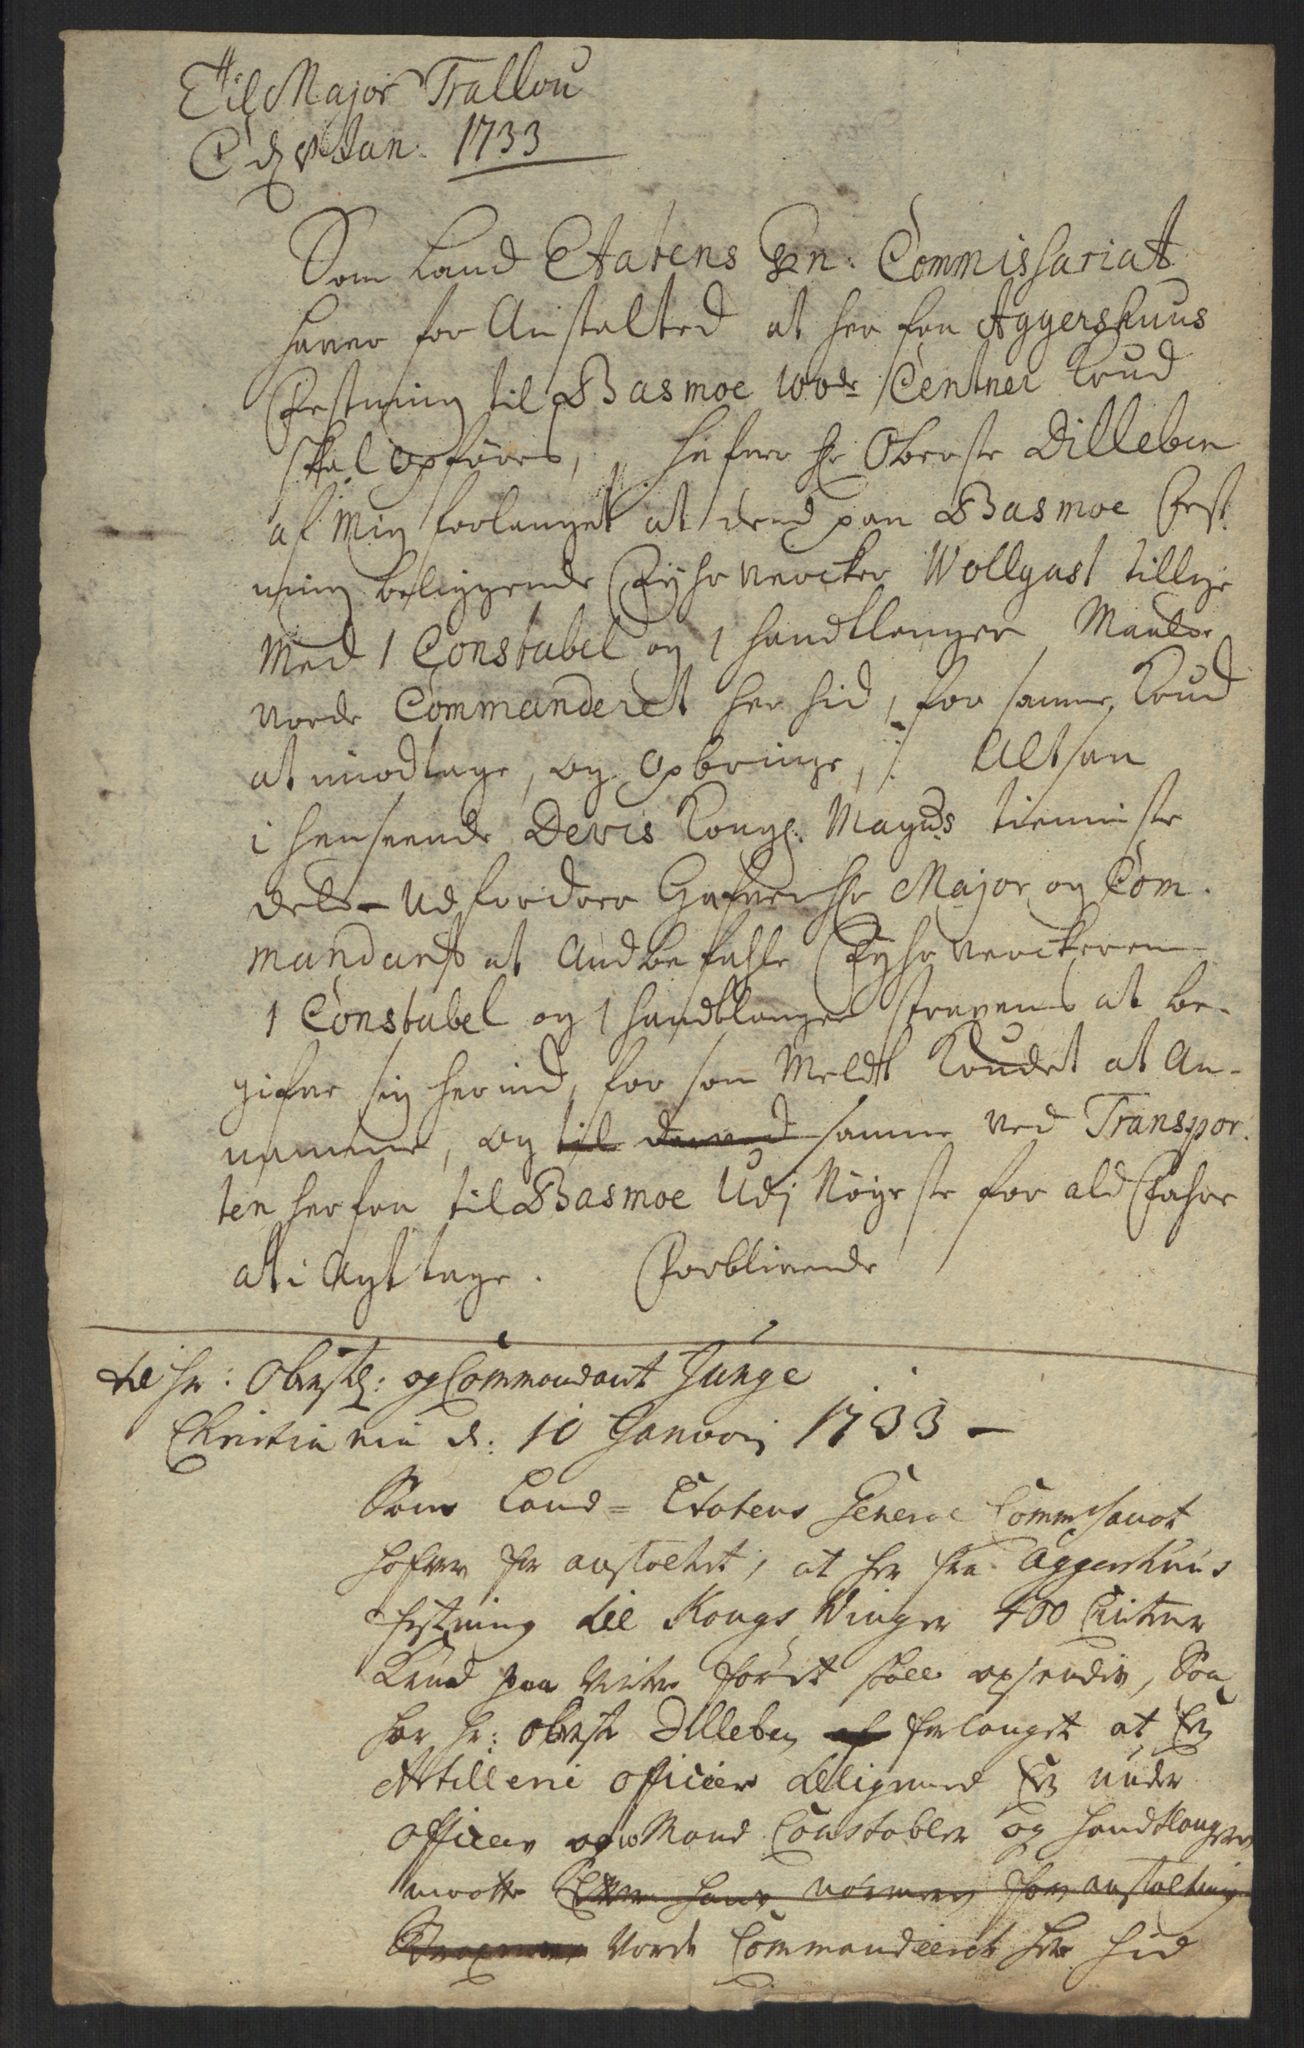 Til Major Trallou
C d: 8 Jan. 1733
Som Land Etatens Gen. Commissariat
haver for Anstalted at her fra Aggershuus
Festning til Basmoe 100de Centner Krud
skal opføres, hafver Hr Oberste Dilleben
af Mig forlanget at dend paa Basmoe Fest
ning beliggende Fyhrvercker Wollgast tillige
Med 1 Constabel og 1 handtlanger Maatte
vorde Commanderet her hid, for samme Krud
at imodtage, og opbringe, /: Altsaa
i henseende Dends Kongl. Mayts tienniste
dets Udfordrer Hafver Hr Major og Com
mandant at Andbefahle Fyhrverckeren
1 Constabel og 1 handtlanger straxens at be-
gifve sig herind, for som Meldt Krudet at An-
namme, og til derved samme ved Transpor
ten herfra til Basmoe Udj Nøyeste for ald Fahre
at i Agt tage. Forblivende
til Hr: Oberstl: og Commandant Junge
Christiania d: 10 Januarij 1733 -
Som Land = Etatens General Commissariat
hafver for anstaltet, at her fra Aggershuus
festning til Kongs Vinger 400 Centner
Krud paa Vinter føret skall opsendis, Saa
har Hr: Oberste Dilleben af forlanget at En
Artillerie officier tilligemed En under
Officer og 10 Mand Constabler og handtlangere
maatte Efter hans nørmere for anstaltning
Vorde Commandeeret her hid